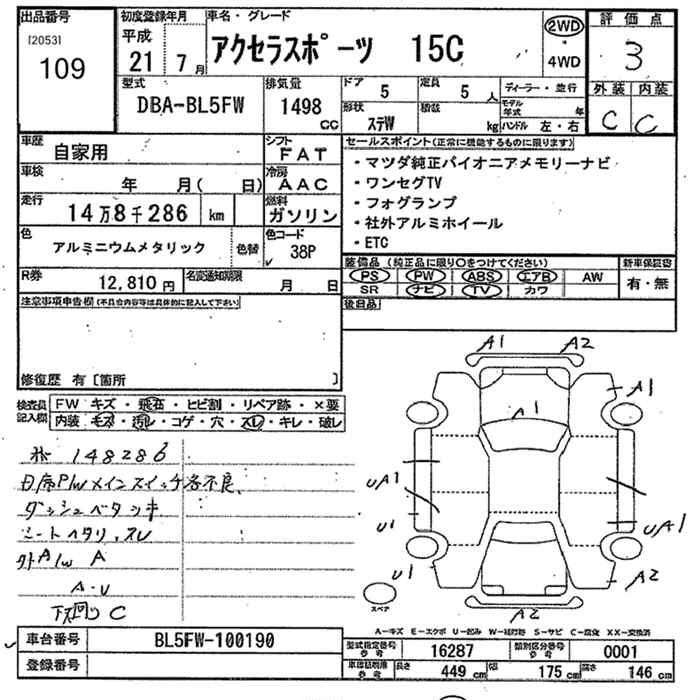 出品番号 初度登録年月 車名・グレード 評価点
[2053] 平成
109 21 7月 アクセラスポーツ 15C 2WD 4WD 3
型式 排気量 ドア 定員 ディーラー・並行 外装 内装
DBA-BL5FW 1498 CC 5 5人 モデル年式 年 C C
形状 ステW 積載 kg ハンドル 左・右
車歴 自家用 シフト FAT セールスポイント(正常に機能するものに限ります)
車検 年 月( 日) 冷房 AAC
・マツダ純正パイオニアメモリーナビ
・ワンセグTV
走行 14万8千286 km 燃料 ガソリン
・フォグランプ
・社外アルミホイール
・ETC
色 アルミニウムメタリック 色替 色コード 38P
装備品(純正品に限り○をつけてください) 新車保証書
R券 12,810円 名変通知期限 月 日
PS PW ABS エアB AW 有・無
SR ナビ TV カワ
注意事項申告欄(不具合内容等は具体的に記入して下さい) 後日品
修復歴 有〔箇所 〕
検査員記入欄 FW キズ・飛石・ヒビ割・リペア跡・×要
内装 キズ・汚れ・コゲ・穴・スレ・キレ・破レ
A1 A2
A1
A1
UA1
U1 UA1
U1 A2
A2
スペア
148286
日席P/Wメインスイッチ各不良
ダッシュベタツキ
シートヘタリ、スレ
外A/W A
A・U
下回り C
A-キズ E-エクボ U-凹み W-補修跡 S-サビ C-腐蝕 XX-交換済
車台番号 BL5FW-100190 型式指定番号 参考 16287 類別区分番号 参考 0001
登録番号 参考 長さ 449cm 幅 175cm 高さ 146cm